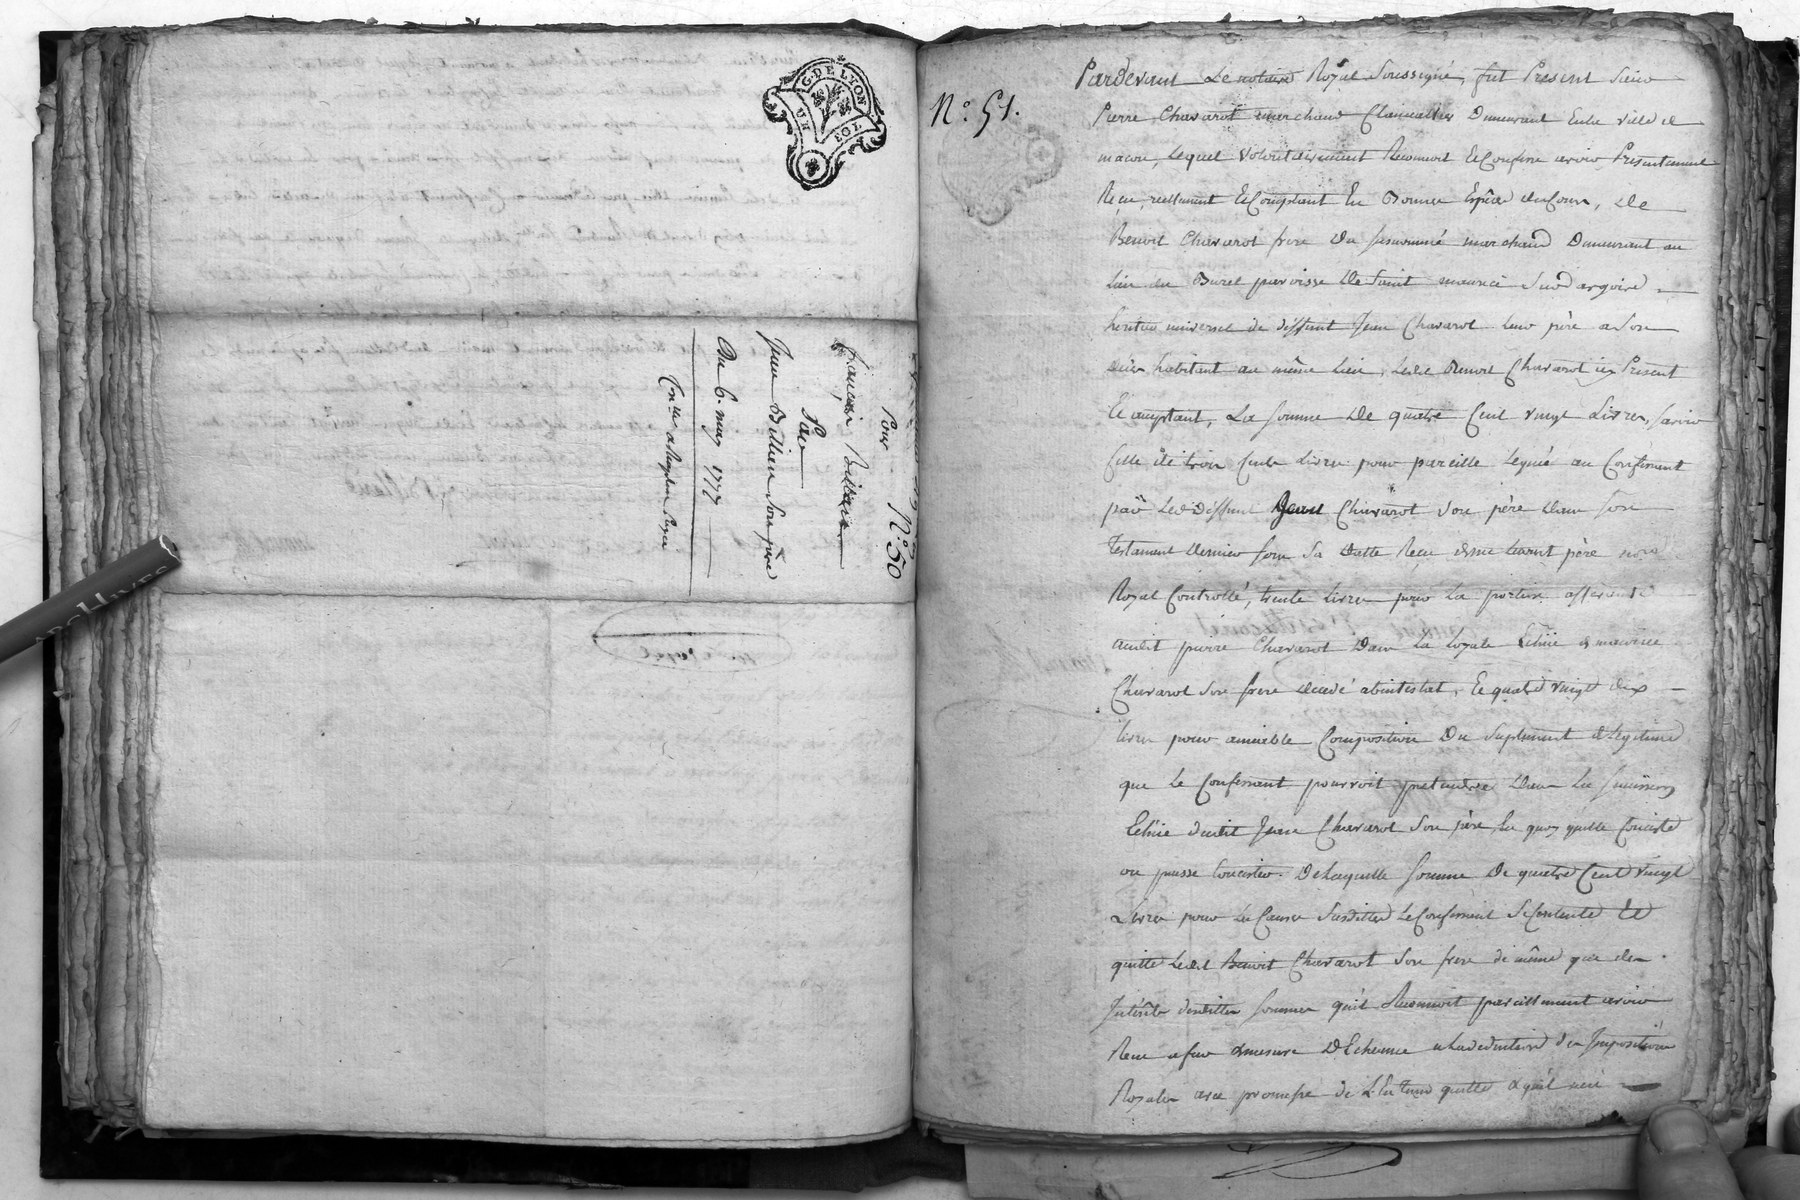 G. DE LYON
N.° 50
Pour
Par
Jean Billien Son père
Du 6. may 1777
N.° 51.
Pardevant Le notaire Royal Soussigné, fut Present Sieur
Pierre Chavarot marchand Demeurant En la ville de
macon, Lequel Volontairement Reconnoit & Confesse avoir Presentement
Reçu, reellement & Comptant En Bonnes Espèces du Cours, De
Benoit Chavarot frere Du Susnommé marchand Demeurant au
Lieu du Burel parroisse De Saint maurice Sur dargoire
heritier universel de deffunt Jean Chavarot leur père a Son
déces habitant au même Lieu, Ledit Benoit Chavarot icy Present
& acceptant, La Somme De quatre Cent vingt Livres, Savoir
Celle de trois Cents Livres pour pareille Leguée au Confessant
par Led. Deffunt Jean Chavarot Son père Dans Son
Testament Dernier Sous Sa Datte Reçu père nore
Royal Controllé, trente Livres pour La portion afferante
audit pierre Chavarot Dans La Loyale Echüe de maurice
Chavarot Son frere décédé abintestat, & quatre vingt dix
Livres pour amiable Composition Du Suplement de Legitime
que Le Confessant pourroit pretendre Dans La Succession
Echüe dudit Jean Chavarot Son père, En quoy quelle Consiste
ou puisse Consister. De Laquelle Somme De quatre Cent Vingt
Livres pour Les Causes Susdittes Le Confessant Se Contente &
quitte Ledit Benoit Chavarot Son frere de même que des
Intérêts desdittes Sommes qu'il Reconnoit pareillement avoir
Reçu a fur & mesure D'Echeance a La deduction des Impositions
Royales avec promesse de L'En tenir quitte &